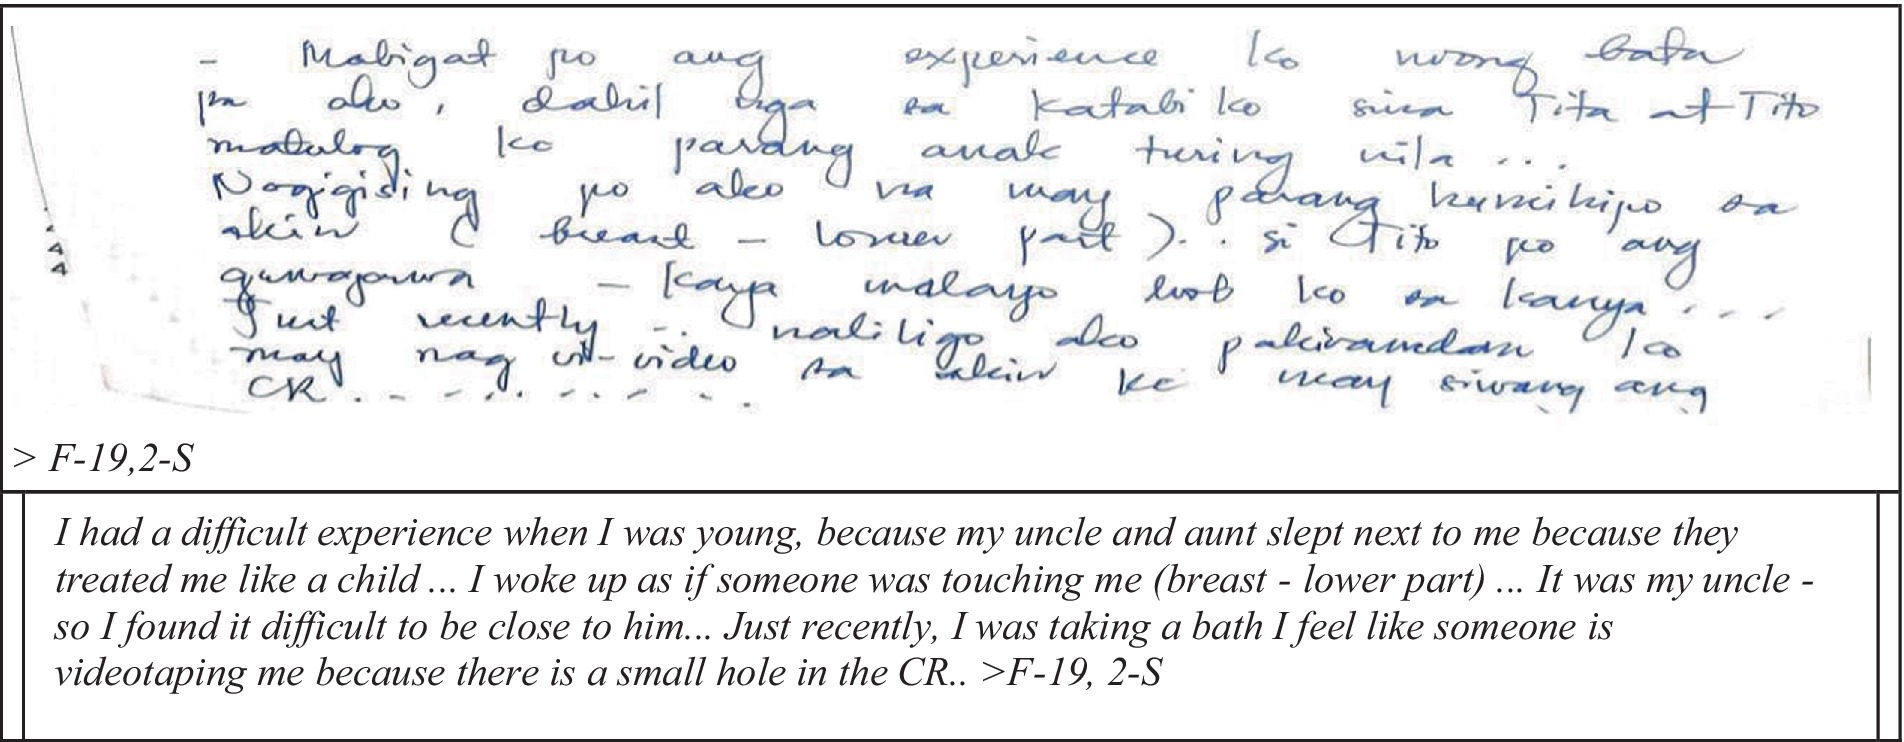 - Mabigat po ang experience ko noong bata
pa ako, dahil nga sa katabi ko sina Tita at Tito
matulog kc parang anak turing nila ...
Nagigising po ako na may parang humihipo sa
akin (breast - lower part). . si Tito po ang
gumagawa - kaya malayo loob ko sa kanya ....
Just recently ... naliligo ako pakiramdam ko
may nag vi-video sa akin kc may siwang ang
CR. - - - . - - - - .
> F-19,2-S
I had a difficult experience when I was young, because my uncle and aunt slept next to me because they
treated me like a child ... I woke up as if someone was touching me (breast - lower part) ... It was my uncle -
so I found it difficult to be close to him... Just recently, I was taking a bath I feel like someone is
videotaping me because there is a small hole in the CR.. >F-19, 2-S